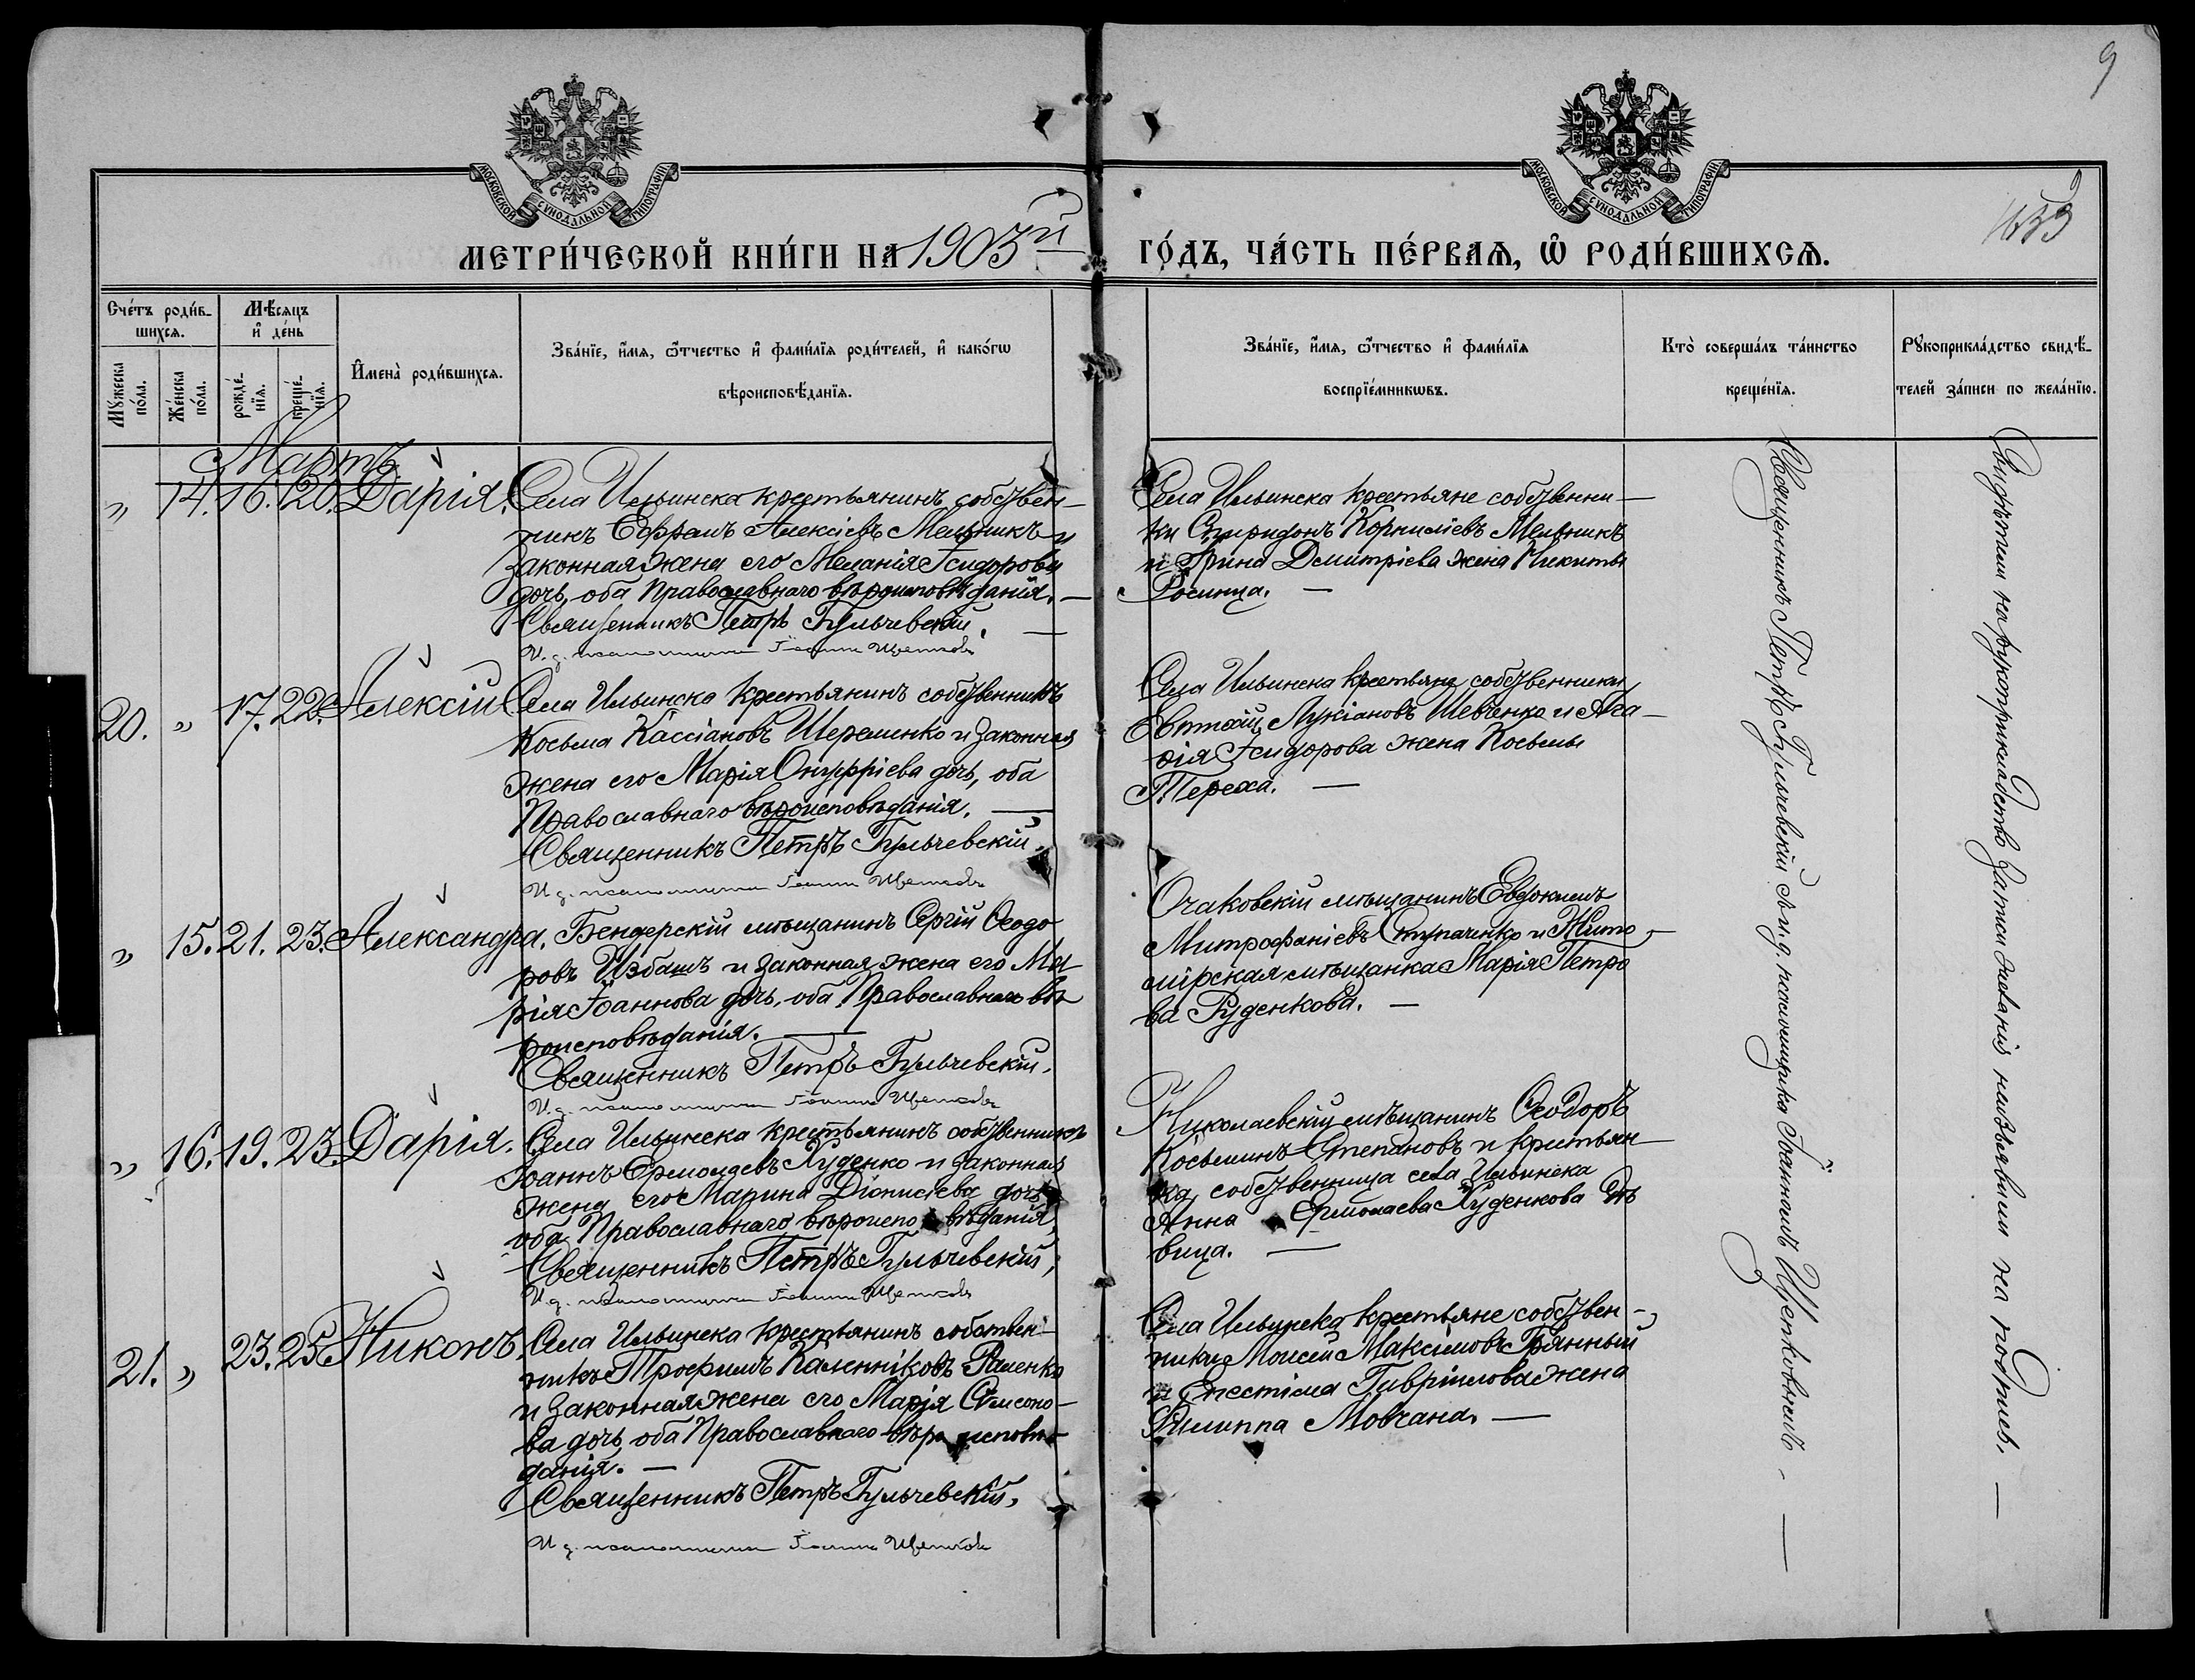 9
МОСКОВСКОЙ СѴНОДАЛЬНОЙ ТИПОГРАФІИ
МОСКОВСКОЙ СѴНОДАЛЬНОЙ ТИПОГРАФІИ
МЕТРИ́ЧЕСКОЙ КНИ́ГИ НА 1903й
ГО́ДЪ, ЧА́СТЬ ПЕ́РВАѦ, Ѡ҆ РОДИ́ВШИХСѦ.
Сче́тъ роди́в-
шихсѧ.
Мѣ́сяцъ
и҆ де́нь
Мꙋ́жеска по́ла.
Же́нска по́ла.
рожде́-
нїѧ.
креще́-
нїѧ.
И҆мена̀ роди́вшихсѧ.
Зва́нїе, и҆́мѧ, ѻ҆́тчество и҆ фами́лїѧ роди́телей, и҆ како́гѡ
вѣроисповѣ́данїѧ.
Зва́нїе, и҆́мѧ, ѻ҆́тчество и҆ фами́лїѧ
воспрїе́мникѡвъ.
Кто̀ соверша́лъ та́инство
креще́нїѧ.
Рꙋкоприкла́дство свидѣ́-
телей за́писи по жела́нїю.
Мартъ
" 14. 16. 20. Дарія.
Села Ильинска крестьянинъ собствен-
никъ Ефремъ Алексіевъ Мельникъ и
законная жена его Меланія Ісидорова
дочь, оба Православнаго вѣроисповѣданія. —
Священникъ Петръ Гульчевскій. —
И. д. псаломщика Іоаннъ Щепковъ
Села Ильинска крестьяне собственни-
ки Спиридонъ Корниліевъ Мельникъ
и Ірина Димитріева жена Никиты
Росинца. —
20. " 17. 22. Алексій
Села Ильинска крестьянинъ собственникъ
Косьма Кассіановъ Шереминко и законная
жена его Марія Онуфріева дочь, оба
Православнаго вѣроисповѣданія. —
Священникъ Петръ Гульчевскій.
И. д. псаломщика Іоаннъ Щепковъ
Села Ильинска крестьяне собственники
Евтихій Лукіановъ Шевченко и Ага-
фія Ісидорова жена Косьмы
Тереха. —
" 15. 21. 23. Александра.
Бендерскій мѣщанинъ Сергій Ѳеодо
ровъ Избашъ и законная жена его Ма
рія Іоаннова дочь, оба Православнаго вѣ
роисповѣданія. —
Священникъ Петръ Гульчевскій.
И. д. псаломщика Іоаннъ Щепковъ
Очаковскій мѣщанинъ Евдокимъ
Митрофаніевъ Ступаченко и Жито-
мірская мѣщанка Марія Петро
ва Руденкова. —
" 16. 19. 23. Дарія.
Села Ильинска крестьянинъ собственникъ
Іоаннъ Ермолаевъ Худенко и законная
жена его Марина Діонисіева дочь
оба Православнаго вѣроиспо вѣданія,
Священникъ Петръ Гульчевскій,
И. д. псаломщика Іоаннъ Щепковъ
Николаевскій мѣщанинъ Ѳеодоръ
Косьминъ Степановъ и крестьян-
ка, собственница села Ильинска
Анна Ермолаева Худенкова дѣ
вица. —
21. " 23. 25 Никонъ.
Села Ильинска крестьянинъ собствен-
никъ Трофимъ Каленніковъ Раменко
и законная жена его Марія Самсоно-
ва дочь, оба Православнаго вѣро исповѣ-
данія. —
Священникъ Петръ Гульчевскій,
И. д. псаломщика Іоаннъ Щепковъ
Села Ильинска крестьяне собствен-
ники Моисей Максимовъ Грянный
и Епестіма Гавріилова жена
Филиппа Мовчана. —
Священникъ Петръ Гульчевскій съ и. д. псаломщика Іоанномъ Щепковымъ. —
Свидѣтели на рукоприкладство записи желанія неизъявили на подпись. —